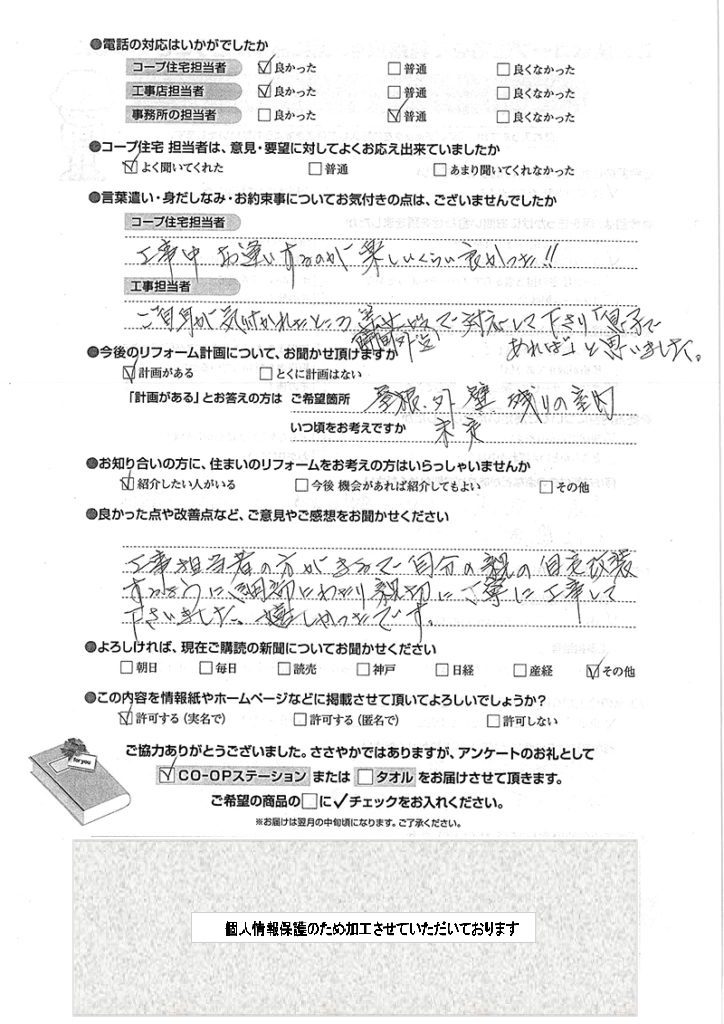 ●電話の対応はいかがでしたか
コープ住宅担当者 ☑良かった □普通 □良くなかった
工事店担当者 ☑良かった □普通 □良くなかった
事務所の担当者 □良かった ☑普通 □良くなかった
●コープ住宅 担当者は、意見・要望に対してよくお応え出来ていましたか
☑よく聞いてくれた □普通 □あまり聞いてくれなかった
●言葉遣い・身だしなみ・お約束事についてお気付きの点は、ございませんでしたか
コープ住宅担当者
工事中 お逢いするのが 楽しいくらい良かった!!
工事担当者
ご自身が気付かれたところ で対応して下さり「息子で
時間外迄
あれば」と思いました。
●今後のリフォーム計画について、お聞かせ頂けますか
☑計画がある □とくに計画はない
「計画がある」とお答えの方は ご希望箇所 屋根、外壁、残りの室内
いつ頃をお考えですか 未定
●お知り合いの方に、住まいのリフォームをお考えの方はいらっしゃいませんか
☑紹介したい人がいる □今後 機会があれば紹介してもよい □その他
●良かった点や改善点など、ご意見やご感想をお聞かせください
工事担当者の方がまるで自分の親の自宅改装
するように細部にわたり親切にご丁寧に工事して
下さいました。嬉しかったです。
●よろしければ、現在ご購読の新聞についてお聞かせください
□朝日 □毎日 □読売 □神戸 □日経 □産経 ☑その他
●この内容を情報紙やホームページなどに掲載させて頂いてよろしいでしょうか?
☑許可する(実名で) □許可する(匿名で) □許可しない
for you
ご協力ありがとうございました。ささやかではありますが、アンケートのお礼として
☑CO-OPステーション または □タオル をお届けさせて頂きます。
ご希望の商品の□に✓チェックをお入れください。
※お届けは翌月の中旬頃になります。ご了承ください。
個人情報保護のため加工させていただいております